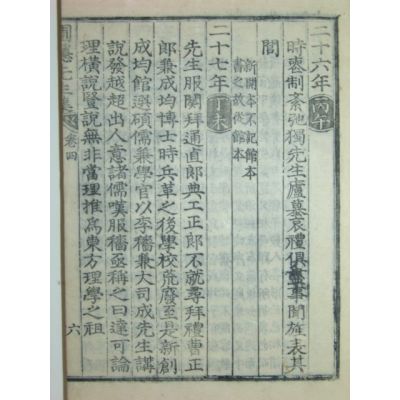 二十六年 丙午
時喪制紊弛獨先生廬墓哀禮俱盡事聞旌表其
閭 新開本不記館本
書之故從館本
二十七年 丁未
先生服闋拜通直郎典工正郎不就尋拜禮曹正
郎兼成均博士時兵革之後學校荒廢至是新創
成均館選碩儒兼學官以李穡兼大司成先生講
說發越超出人意諸儒嘆服穡亟稱之曰達可論
理橫說竪說無非當理推爲東方理學之祖
卷四 六